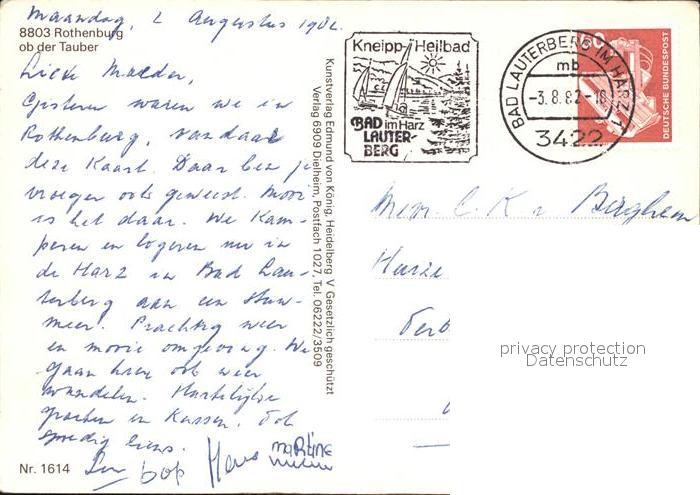 Maandag, 2 Augustus 1982.
8803 Rothenburg
ob der Tauber
Lieve Moeder,
Gisteren waren we in
Rothenburg, vandaar
deze Kaart. Daar ben je
vroeger ook geweest. Mooi
is het daar. We Kam-
peren en logeren nu in
de Harz in Bad Lau-
terberg aan een Stuw-
meer. Prachtig weer
en mooie omgeving. We
gaan hier ook weer
wandelen. Hartelijke
groeten en Kussen. Tot
spoedig
bob Hans MARTINE
Nr. 1614
Kunstverlag Edmund von König, Heidelberg V Gesetzlich geschützt
Verlag 6909 Dielheim, Postfach 1027, Tel. 06222/3509
Kneipp-Heilbad
BAD im Harz
LAUTER-
BERG
BAD LAUTERBERG IM HARZ 1
mb
-3.8.82-
3422
60
DEUTSCHE BUNDESPOST
Mevr. C. K Berghem
privacy protection
Datenschutz